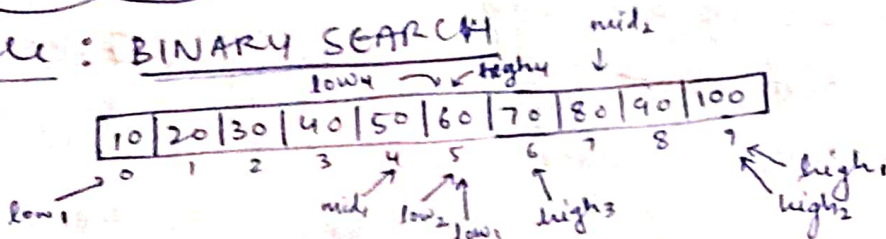 : BINARY SEARCH
mid₂
low₄ high₄
10 20 30 40 50 60 70 80 90 100
0 1 2 3 4 5 6 7 8 9
low₁ mid₁ low₂ high₃ high₁
high₂